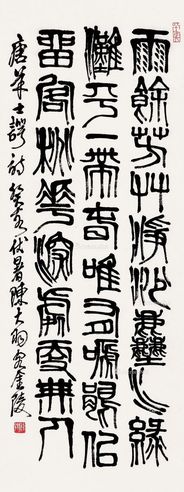 雨餘芳艸淨沙塵水綠
灘平一帶春唯有啼鵑似
留客桃花深處更無人
唐羊士諤詩癸亥伏暑陳大羽客金陵